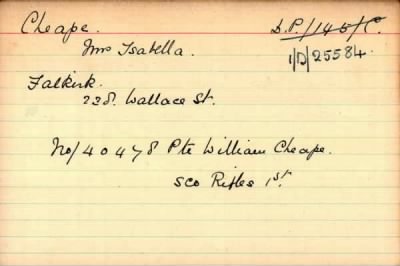 Cheape. D.P./145/C.
Mrs Isabella. 1/D/25584.
Falkirk.
238. Wallace St.
No/40478 Pte William Cheape.
Sco Rifles 1st.